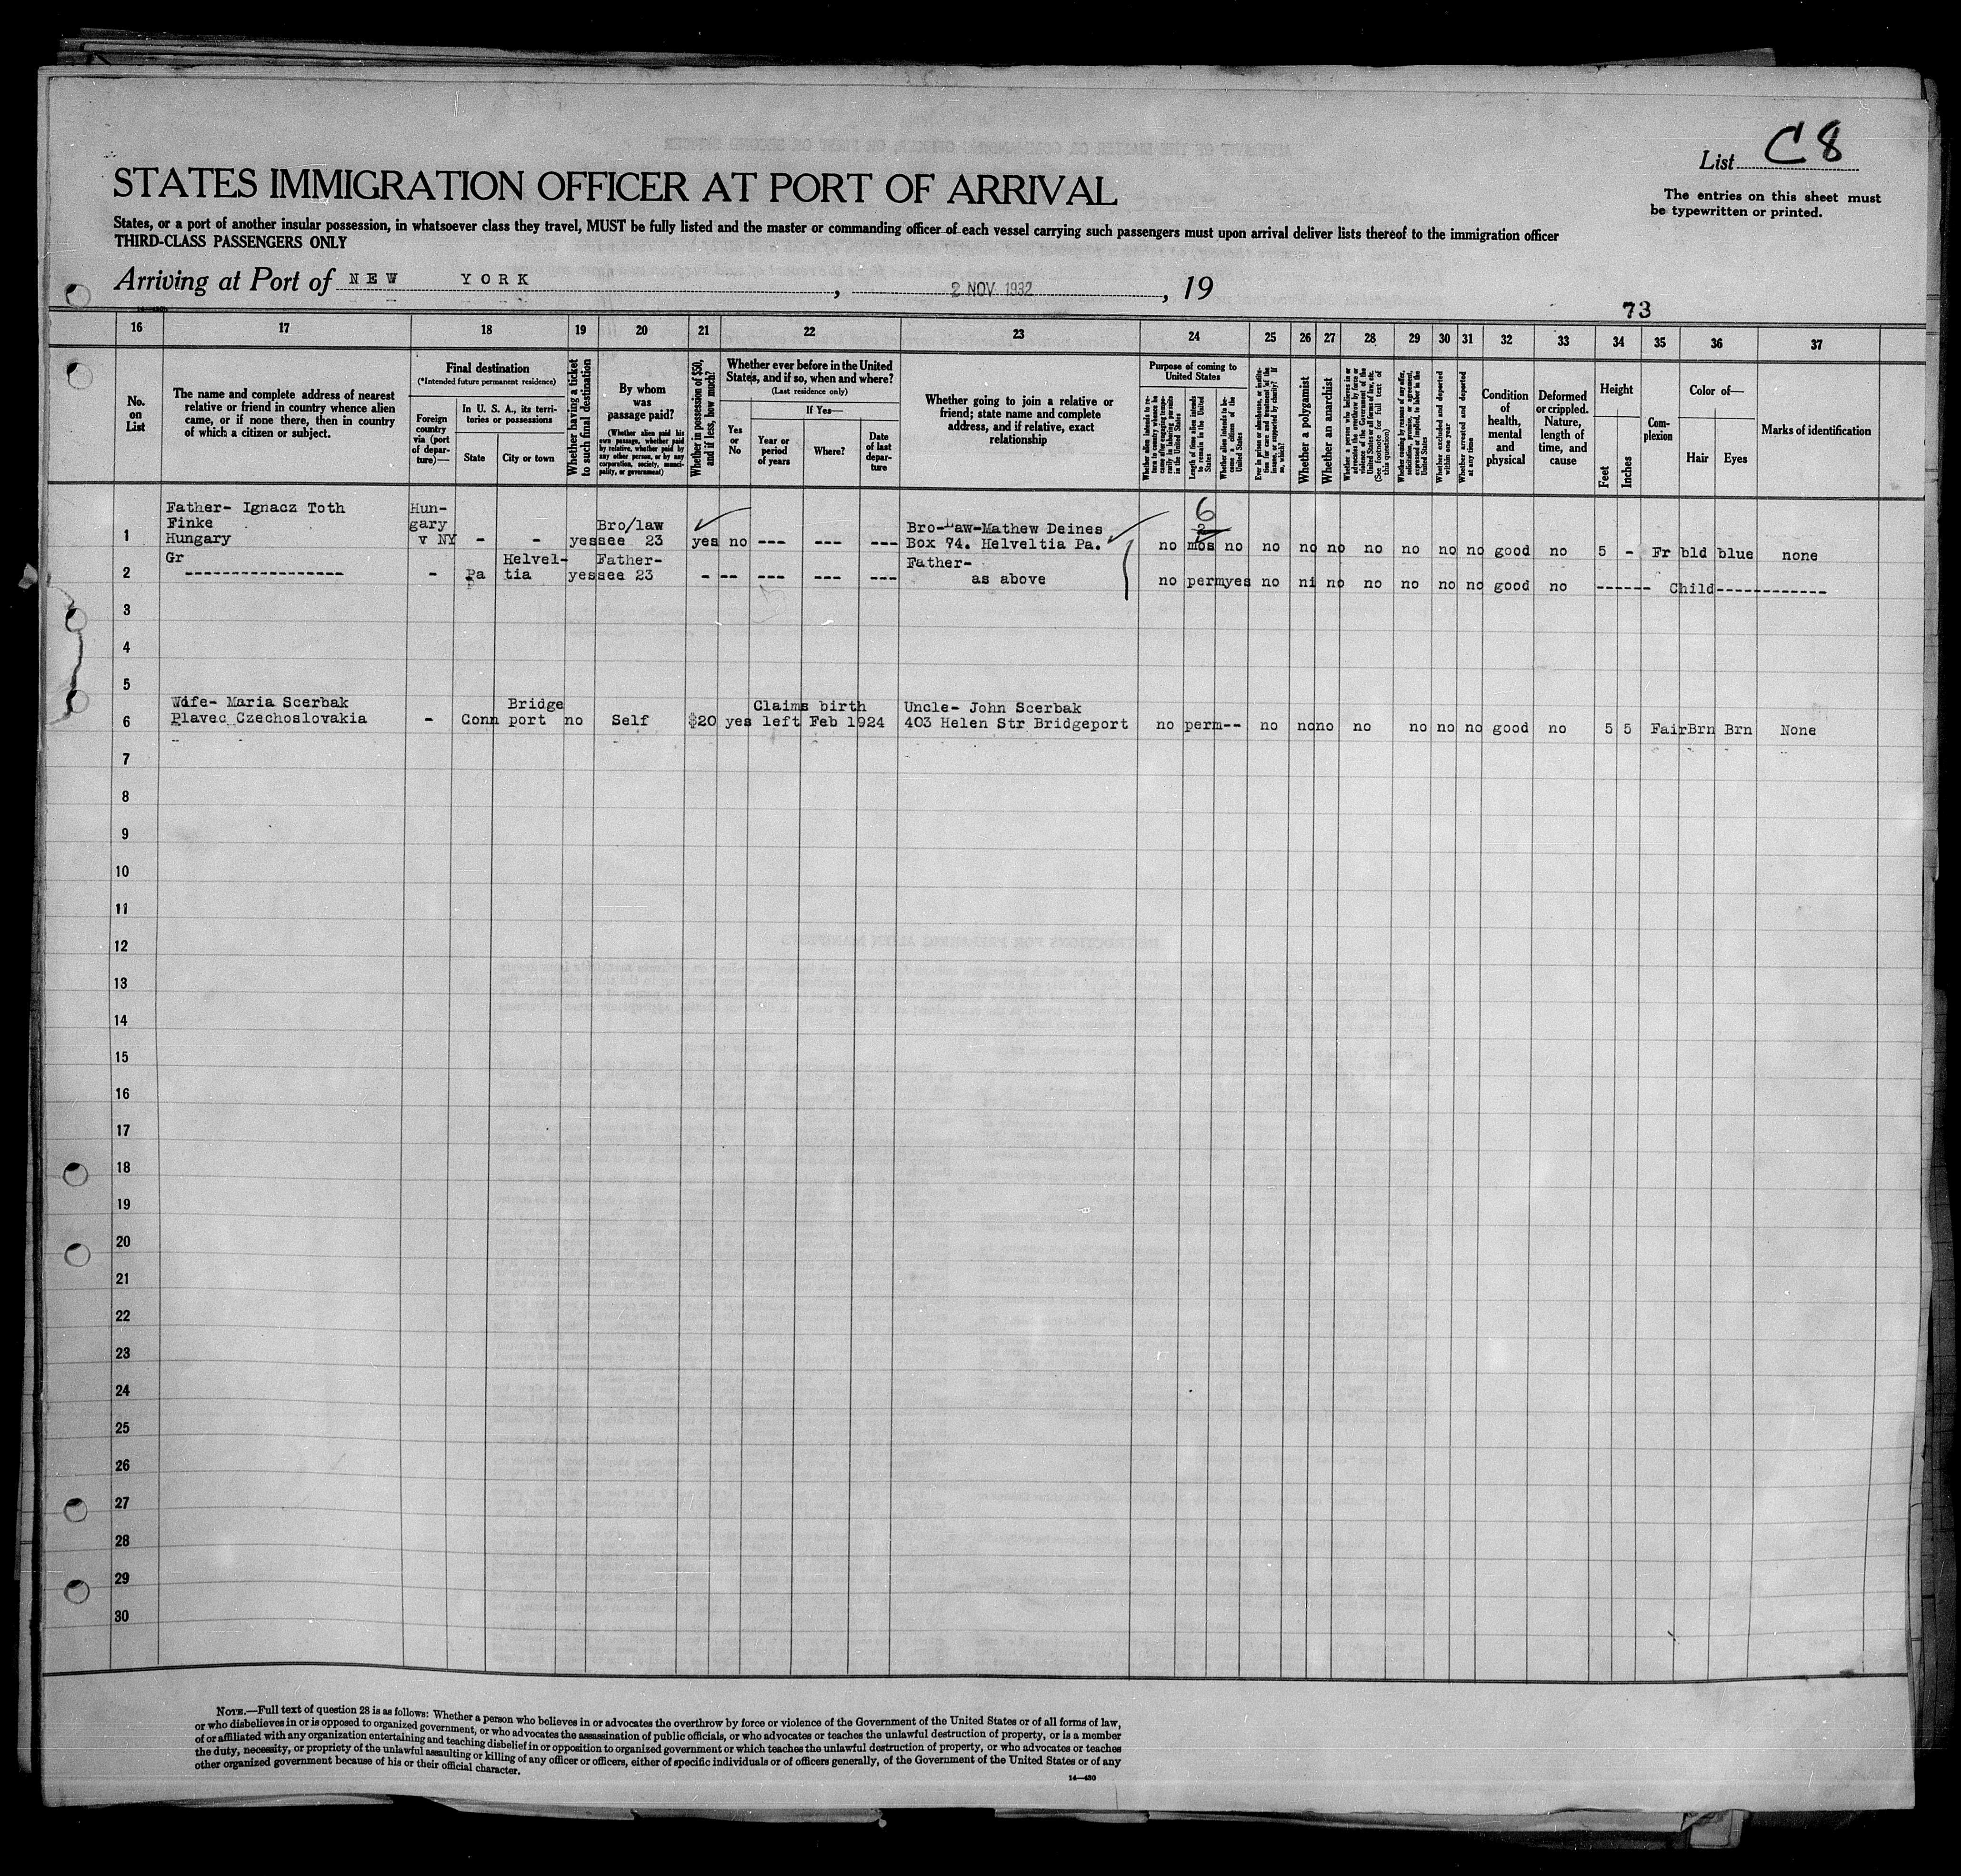 List C8
The entries on this sheet must
be typewritten or printed.
STATES IMMIGRATION OFFICER AT PORT OF ARRIVAL
States, or a port of another insular possession, in whatsoever class they travel, MUST be fully listed and the master or commanding officer of each vessel carrying such passengers must upon arrival deliver lists thereof to the immigration officer
THIRD-CLASS PASSENGERS ONLY
Arriving at Port of NEW YORK, 2 NOV 1932, 19
73
16 17 18 19 20 21 22 23 24 25 26 27 28 29 30 31 32 33 34 35 36 37
No.
on
List
The name and complete address of nearest
relative or friend in country whence alien
came, or if none there, then in country
of which a citizen or subject.
Final destination
(*Intended future permanent residence)
Foreign
country
via (port
of depar-
ture)—
In U. S. A., its terri-
tories or possessions
State
City or town
Whether having a ticket
to such final destination
By whom
was
passage paid?
(Whether alien paid his
own passage, whether paid
by relative, whether paid by
any other person, or by any
corporation, society, munici-
pality, or government)
Whether in possession of $50,
and if less, how much?
Whether ever before in the United
States, and if so, when and where?
(Last residence only)
Yes
or
No
If Yes—
Year or
period
of years
Where?
Date
of last
depar-
ture
Whether going to join a relative or
friend; state name and complete
address, and if relative, exact
relationship
Purpose of coming to
United States
Whether alien intends to re-
turn to country whence he
came after engaging tempo-
rarily in laboring pursuits
in the United States
Length of time alien intends
to remain in the United
States
Whether alien intends to be-
come a citizen of the
United States
Ever in prison or almshouse, or institu-
tion for care and treatment of the
insane, or supported by charity? If
so, which?
Whether a polygamist
Whether an anarchist
Whether a person who believes in or
advocates the overthrow by force or
violence of the Government of the
United States or all forms of law, etc.
(See footnote for full text of
this question)
Whether coming by reason of any offer,
solicitation, promise, or agreement,
expressed or implied, to labor in the
United States
Whether excluded and deported
within one year
Whether arrested and deported
at any time
Condition
of
health,
mental
and
physical
Deformed
or crippled.
Nature,
length of
time, and
cause
Height
Feet
Inches
Com-
plexion
Color of—
Hair
Eyes
Marks of identification
Father- Ignacz Toth Hun-
Finke gary Bro/law Bro-Law-Mathew Deines 6
1 Hungary v NY - - yes see 23 yes no --- --- --- Box 74. Helveltia Pa. no mos no no no no no no no no good no 5 - Fr bld blue none
Gr Helvel- Father- Father-
2 ----------------- - Pa tia yes see 23 - -- --- --- --- as above no perm yes no ni no no no no no good no ------ Child-------------
3
4
5
Wife- Maria Scerbak Bridge Claims birth Uncle- John Scerbak
6 Plavec Czechoslovakia - Conn port no Self $20 yes left Feb 1924 403 Helen Str Bridgeport no perm -- no no no no no no no good no 5 5 Fair Brn Brn None
7
8
9
10
11
12
13
14
15
16
17
18
19
20
21
22
23
24
25
26
27
28
29
30
NOTE.—Full text of question 28 is as follows: Whether a person who believes in or advocates the overthrow by force or violence of the Government of the United States or of all forms of law,
or who disbelieves in or is opposed to organized government, or who advocates the assassination of public officials, or who advocates or teaches the unlawful destruction of property, or is a member
of or affiliated with any organization entertaining and teaching disbelief in or opposition to organized government or which teaches the unlawful destruction of property, or who advocates or teaches
the duty, necessity, or propriety of the unlawful assaulting or killing of any officer or officers, either of specific individuals or of officers generally, of the Government of the United States or of any
other organized government because of his or their official character.
14—430